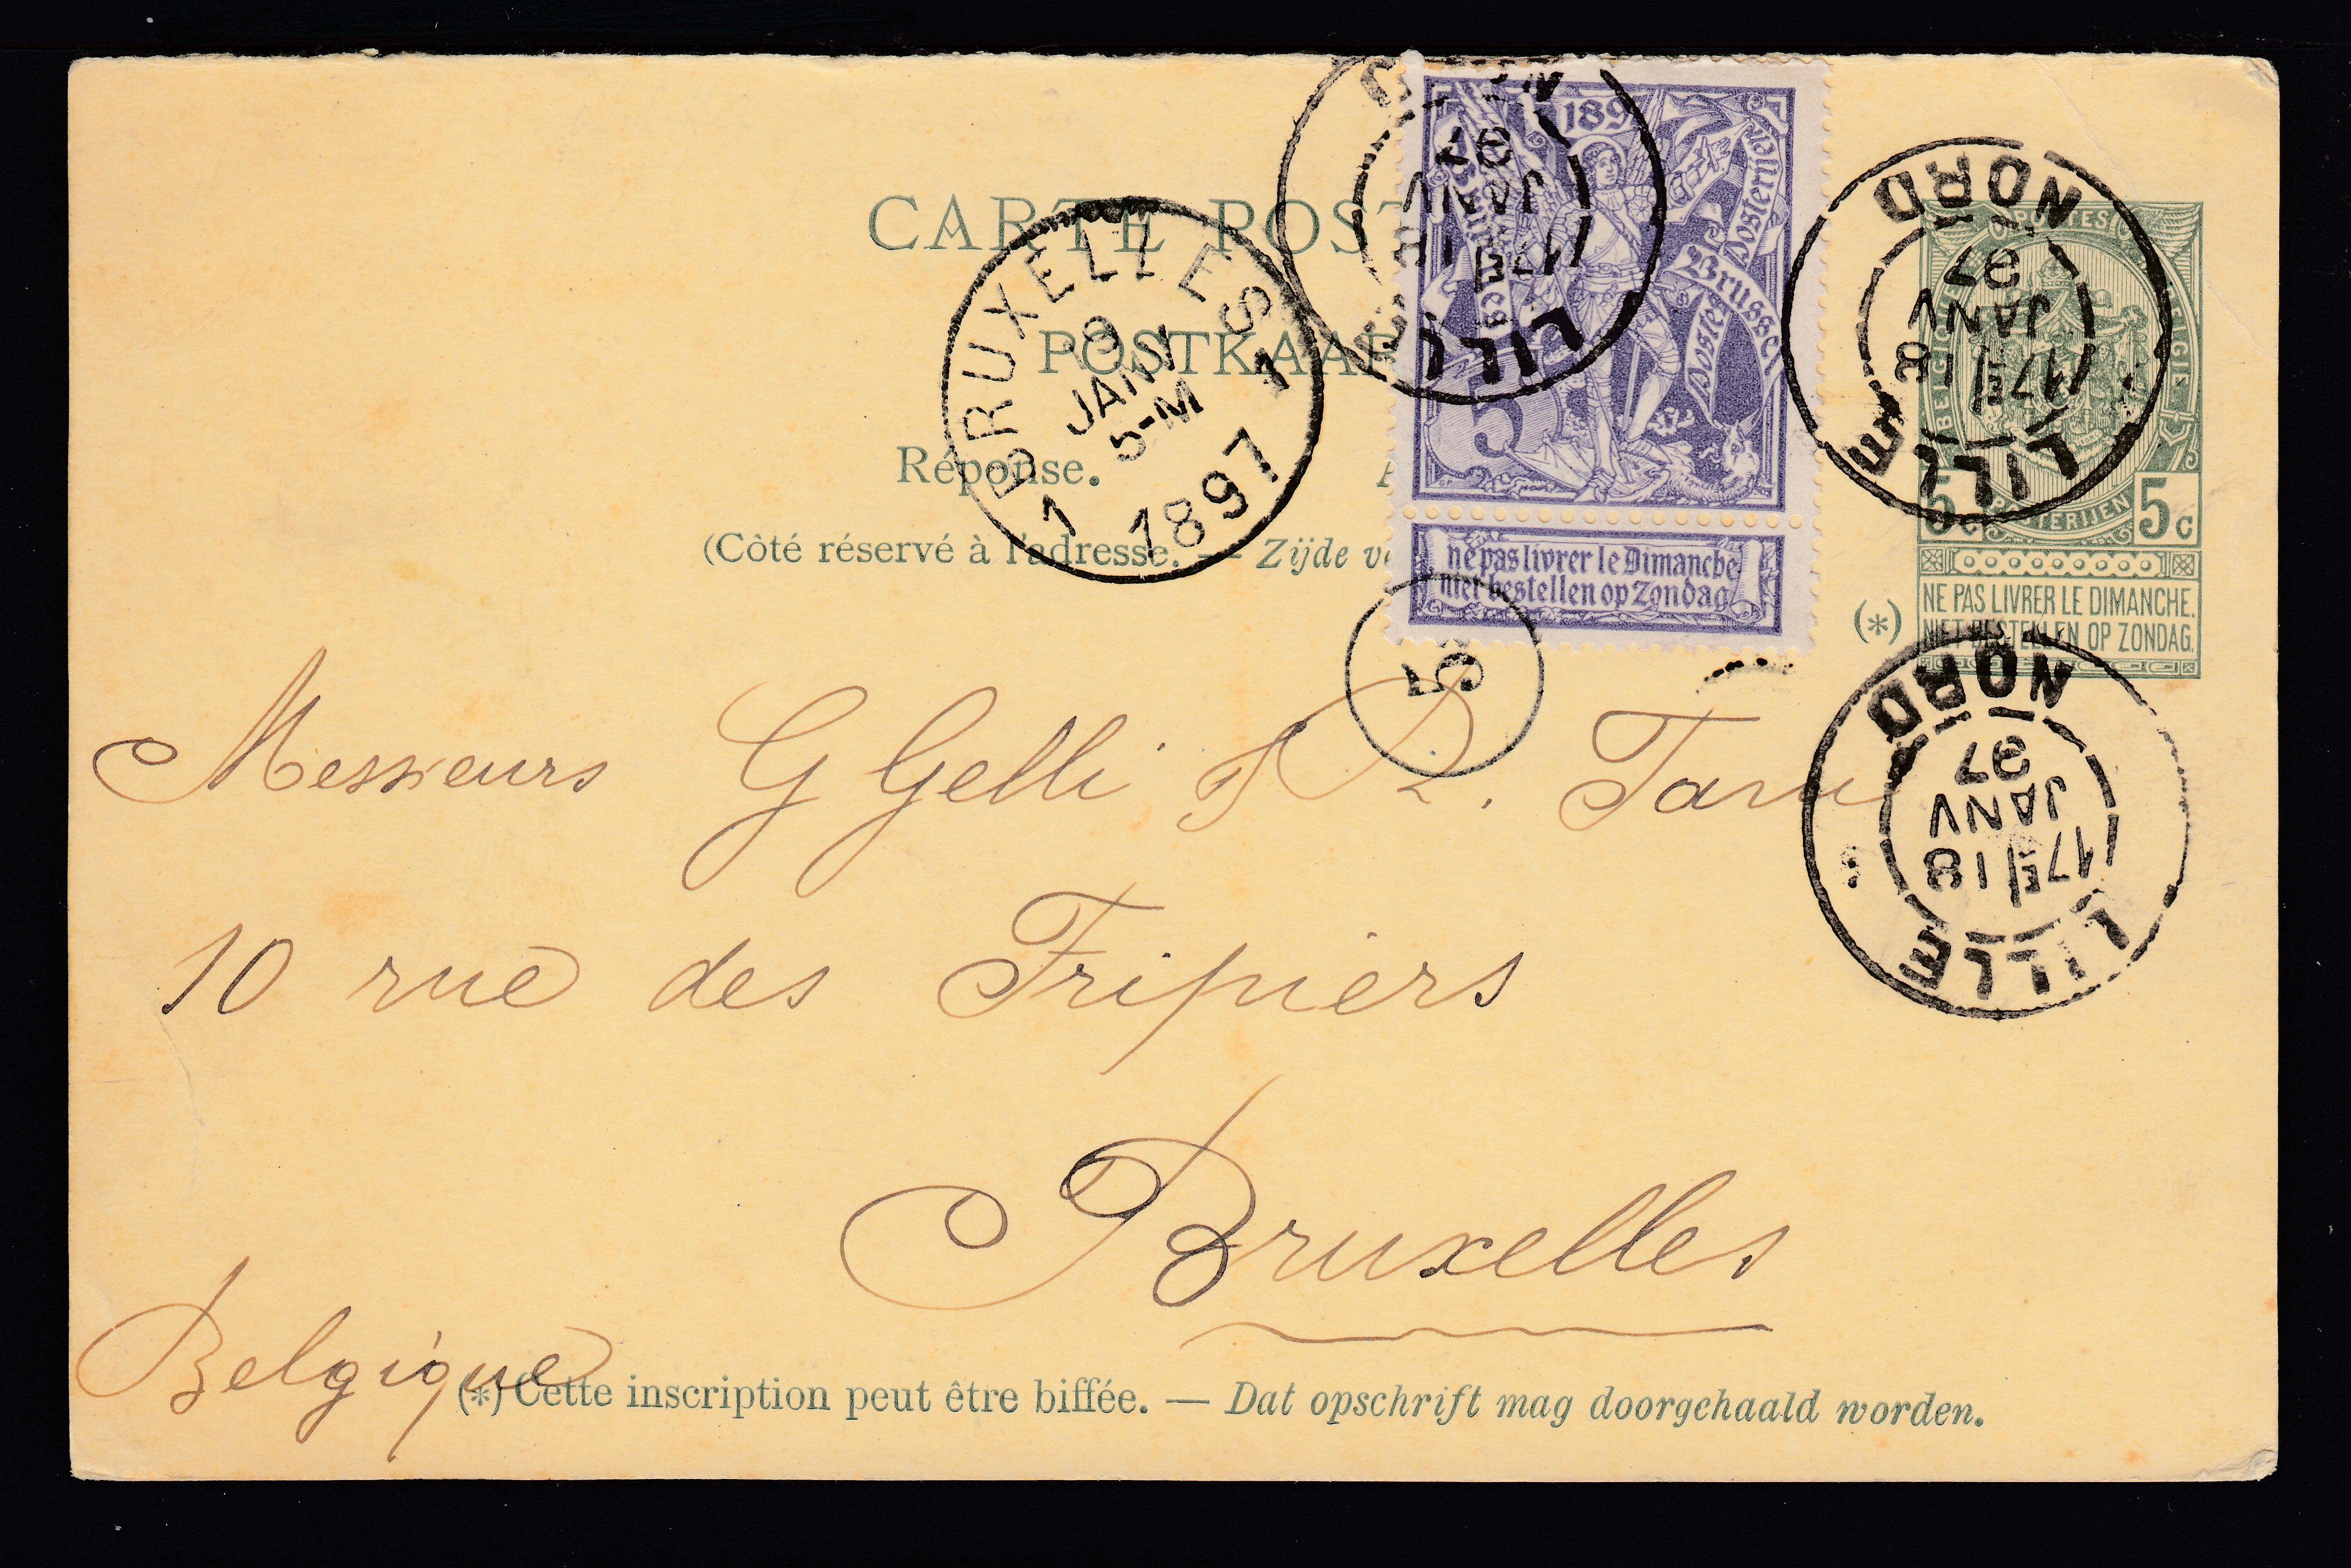 CARTE POST
POSTKAAR
Réponse. A
(Côté réservé à l'adresse. — Zijde v
BRUXELLES 1
9
JANV
5-M
1897
1
LILLE
17E/18
JANV
97
189
Bruxelles
Brussel
5
ne pas livrer le Dimanche
niet bestellen op Zondag
LILLE
17E/18
JANV
97
NORD
POSTES
BELGIQUE
BELGIE
POSTERIJEN
5c 5c
(*) NE PAS LIVRER LE DIMANCHE.
NIET BESTELLEN OP ZONDAG.
5
LILLE
17E/18
JANV
97
NORD
Messieurs G Gelli & R. Tani
10 rue des Fripiers
Bruxelles
Belgique
(*) Cette inscription peut être biffée. — Dat opschrift mag doorgehaald worden.